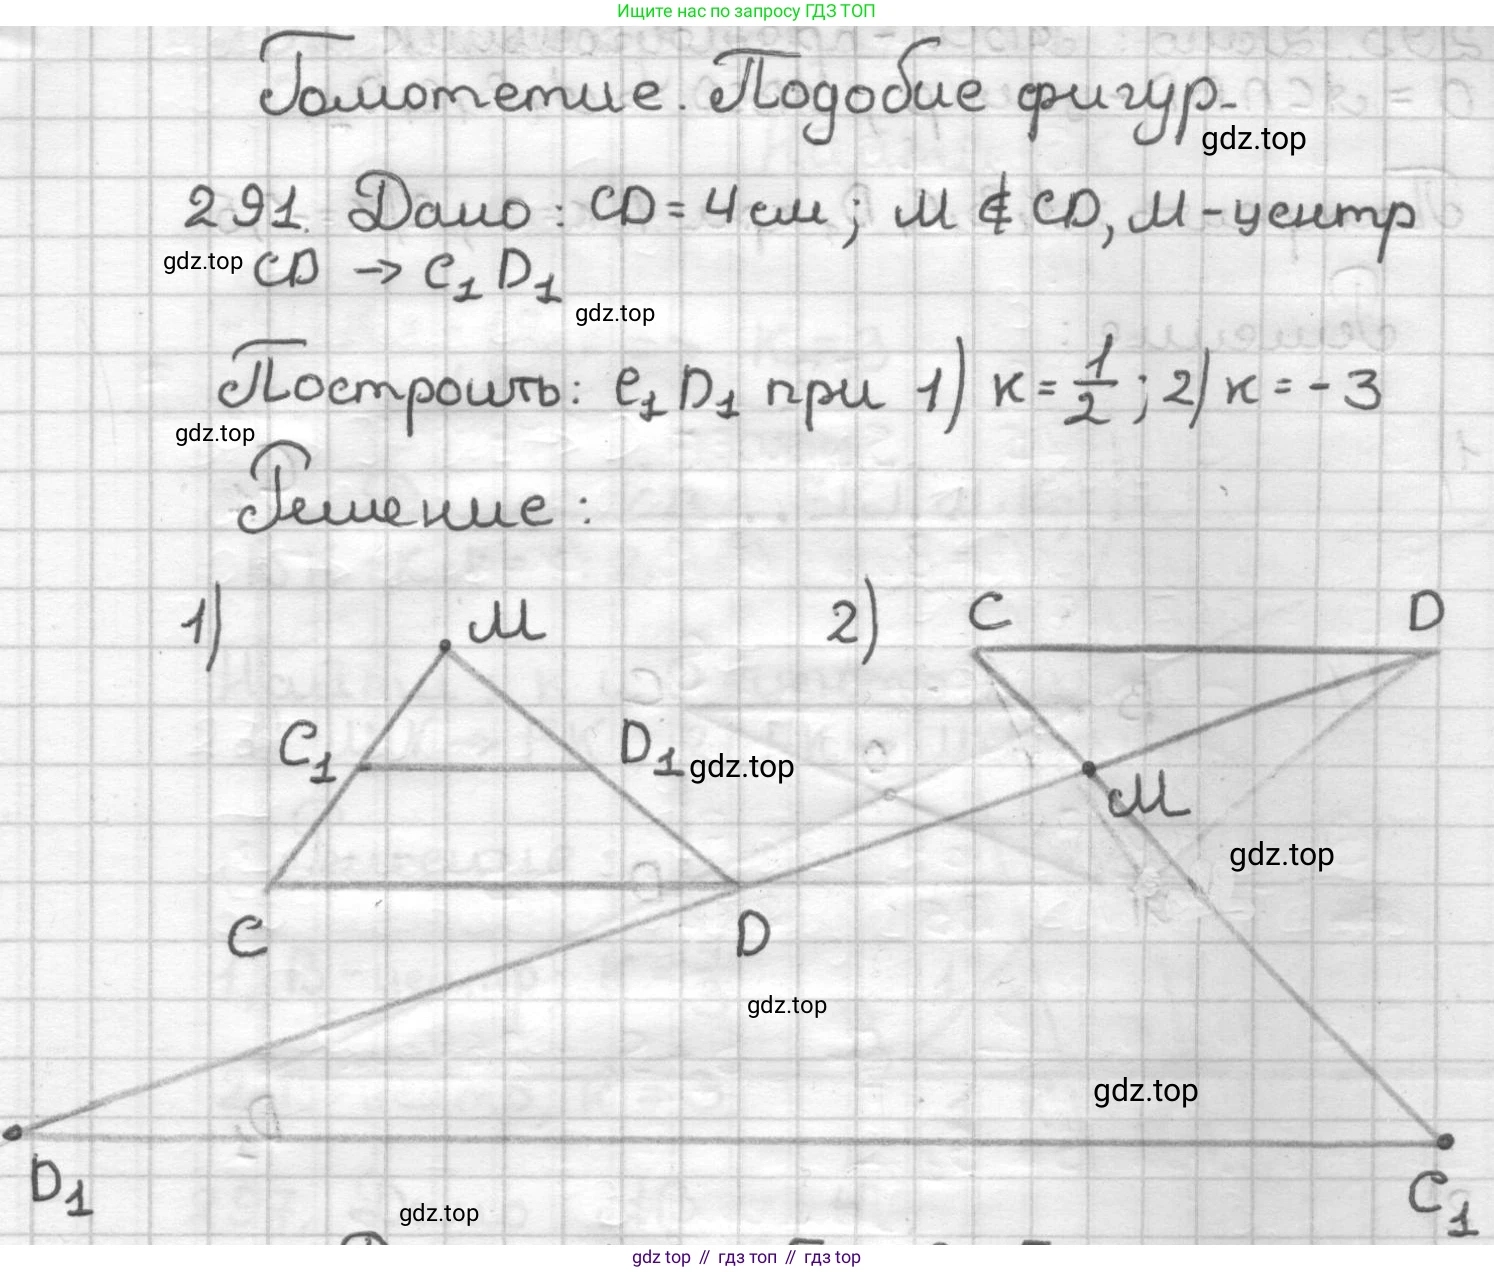 Ищите нас по запросу ГДЗ ТОП
Гомотетие. Подобие фигур.
gdz.top
291. Дано: CD = 4 см; M ∉ CD, M - центр
gdz.top CD → C₁D₁
gdz.top
Построить: C₁D₁ при 1) к = 1/2; 2) к = - 3
gdz.top
Решение:
1) M
C₁ D₁ gdz.top
C D
2) C D
M
gdz.top
gdz.top
gdz.top
D₁ C₁
gdz.top
gdz top // гдз топ // гдз top